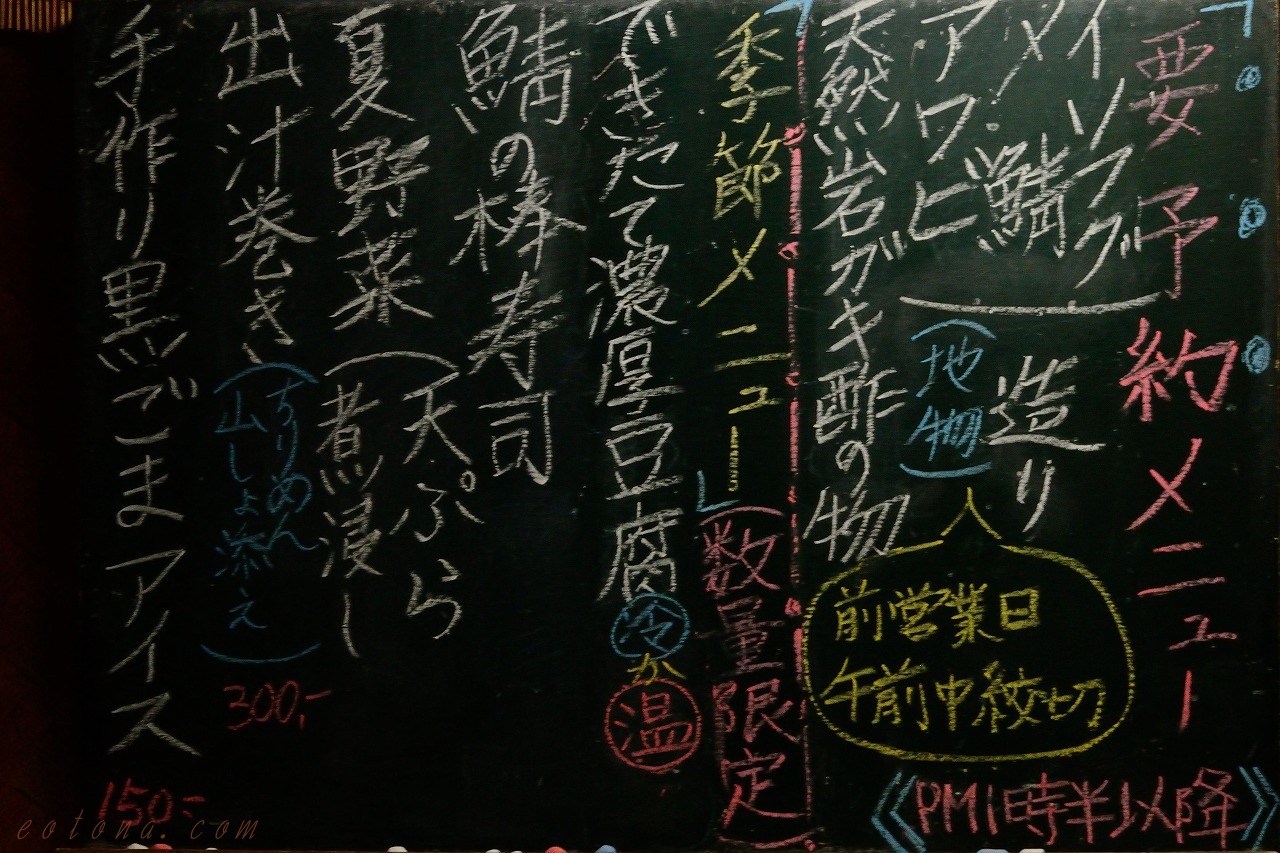 「要予約メニュー
《PM1時半以降》
イソフグ
メイ鯖
アワビ
造り
(地物)
天然岩ガキ酢の物
前営業日
午前中絞切
「季節メニュー」(数量限定)
できたて濃厚豆腐 冷か温
鯖の棒寿司
夏野菜(天ぷら
煮浸し
出汁巻き(ちりめん
山しょ添え)
300,-
手作り黒ごまアイス
150-
eotona.com